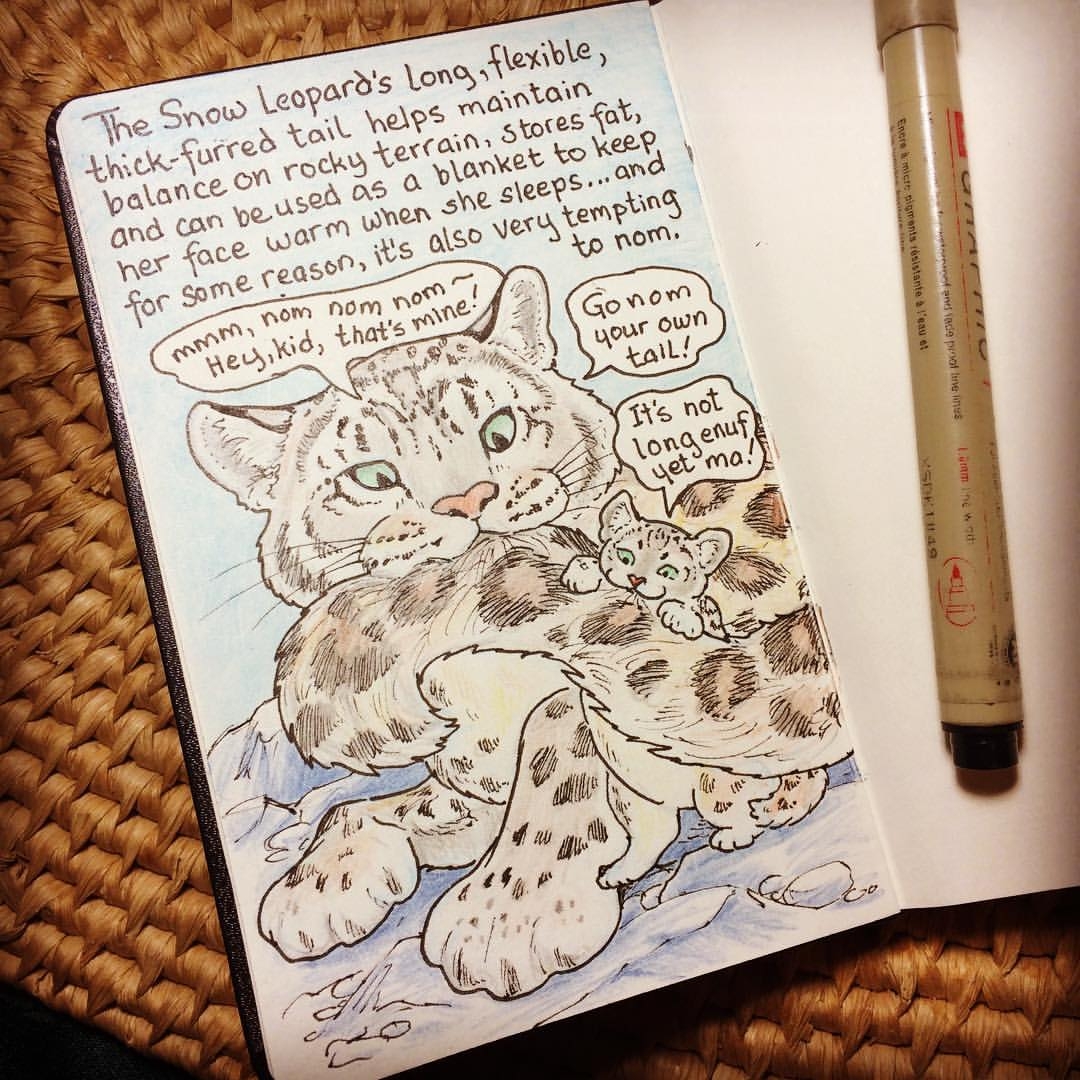 The Snow Leopard's long, flexible,
thick-furred tail helps maintain
balance on rocky terrain, stores fat,
and can be used as a blanket to keep
her face warm when she sleeps...and
for some reason, it's also very tempting
to nom.
mmm, nom nom nom~
Hey, kid, that's mine!
Go nom
your own
tail!
It's not
long enuf
yet ma!
Encre à micro pigments résistante à l'eau et